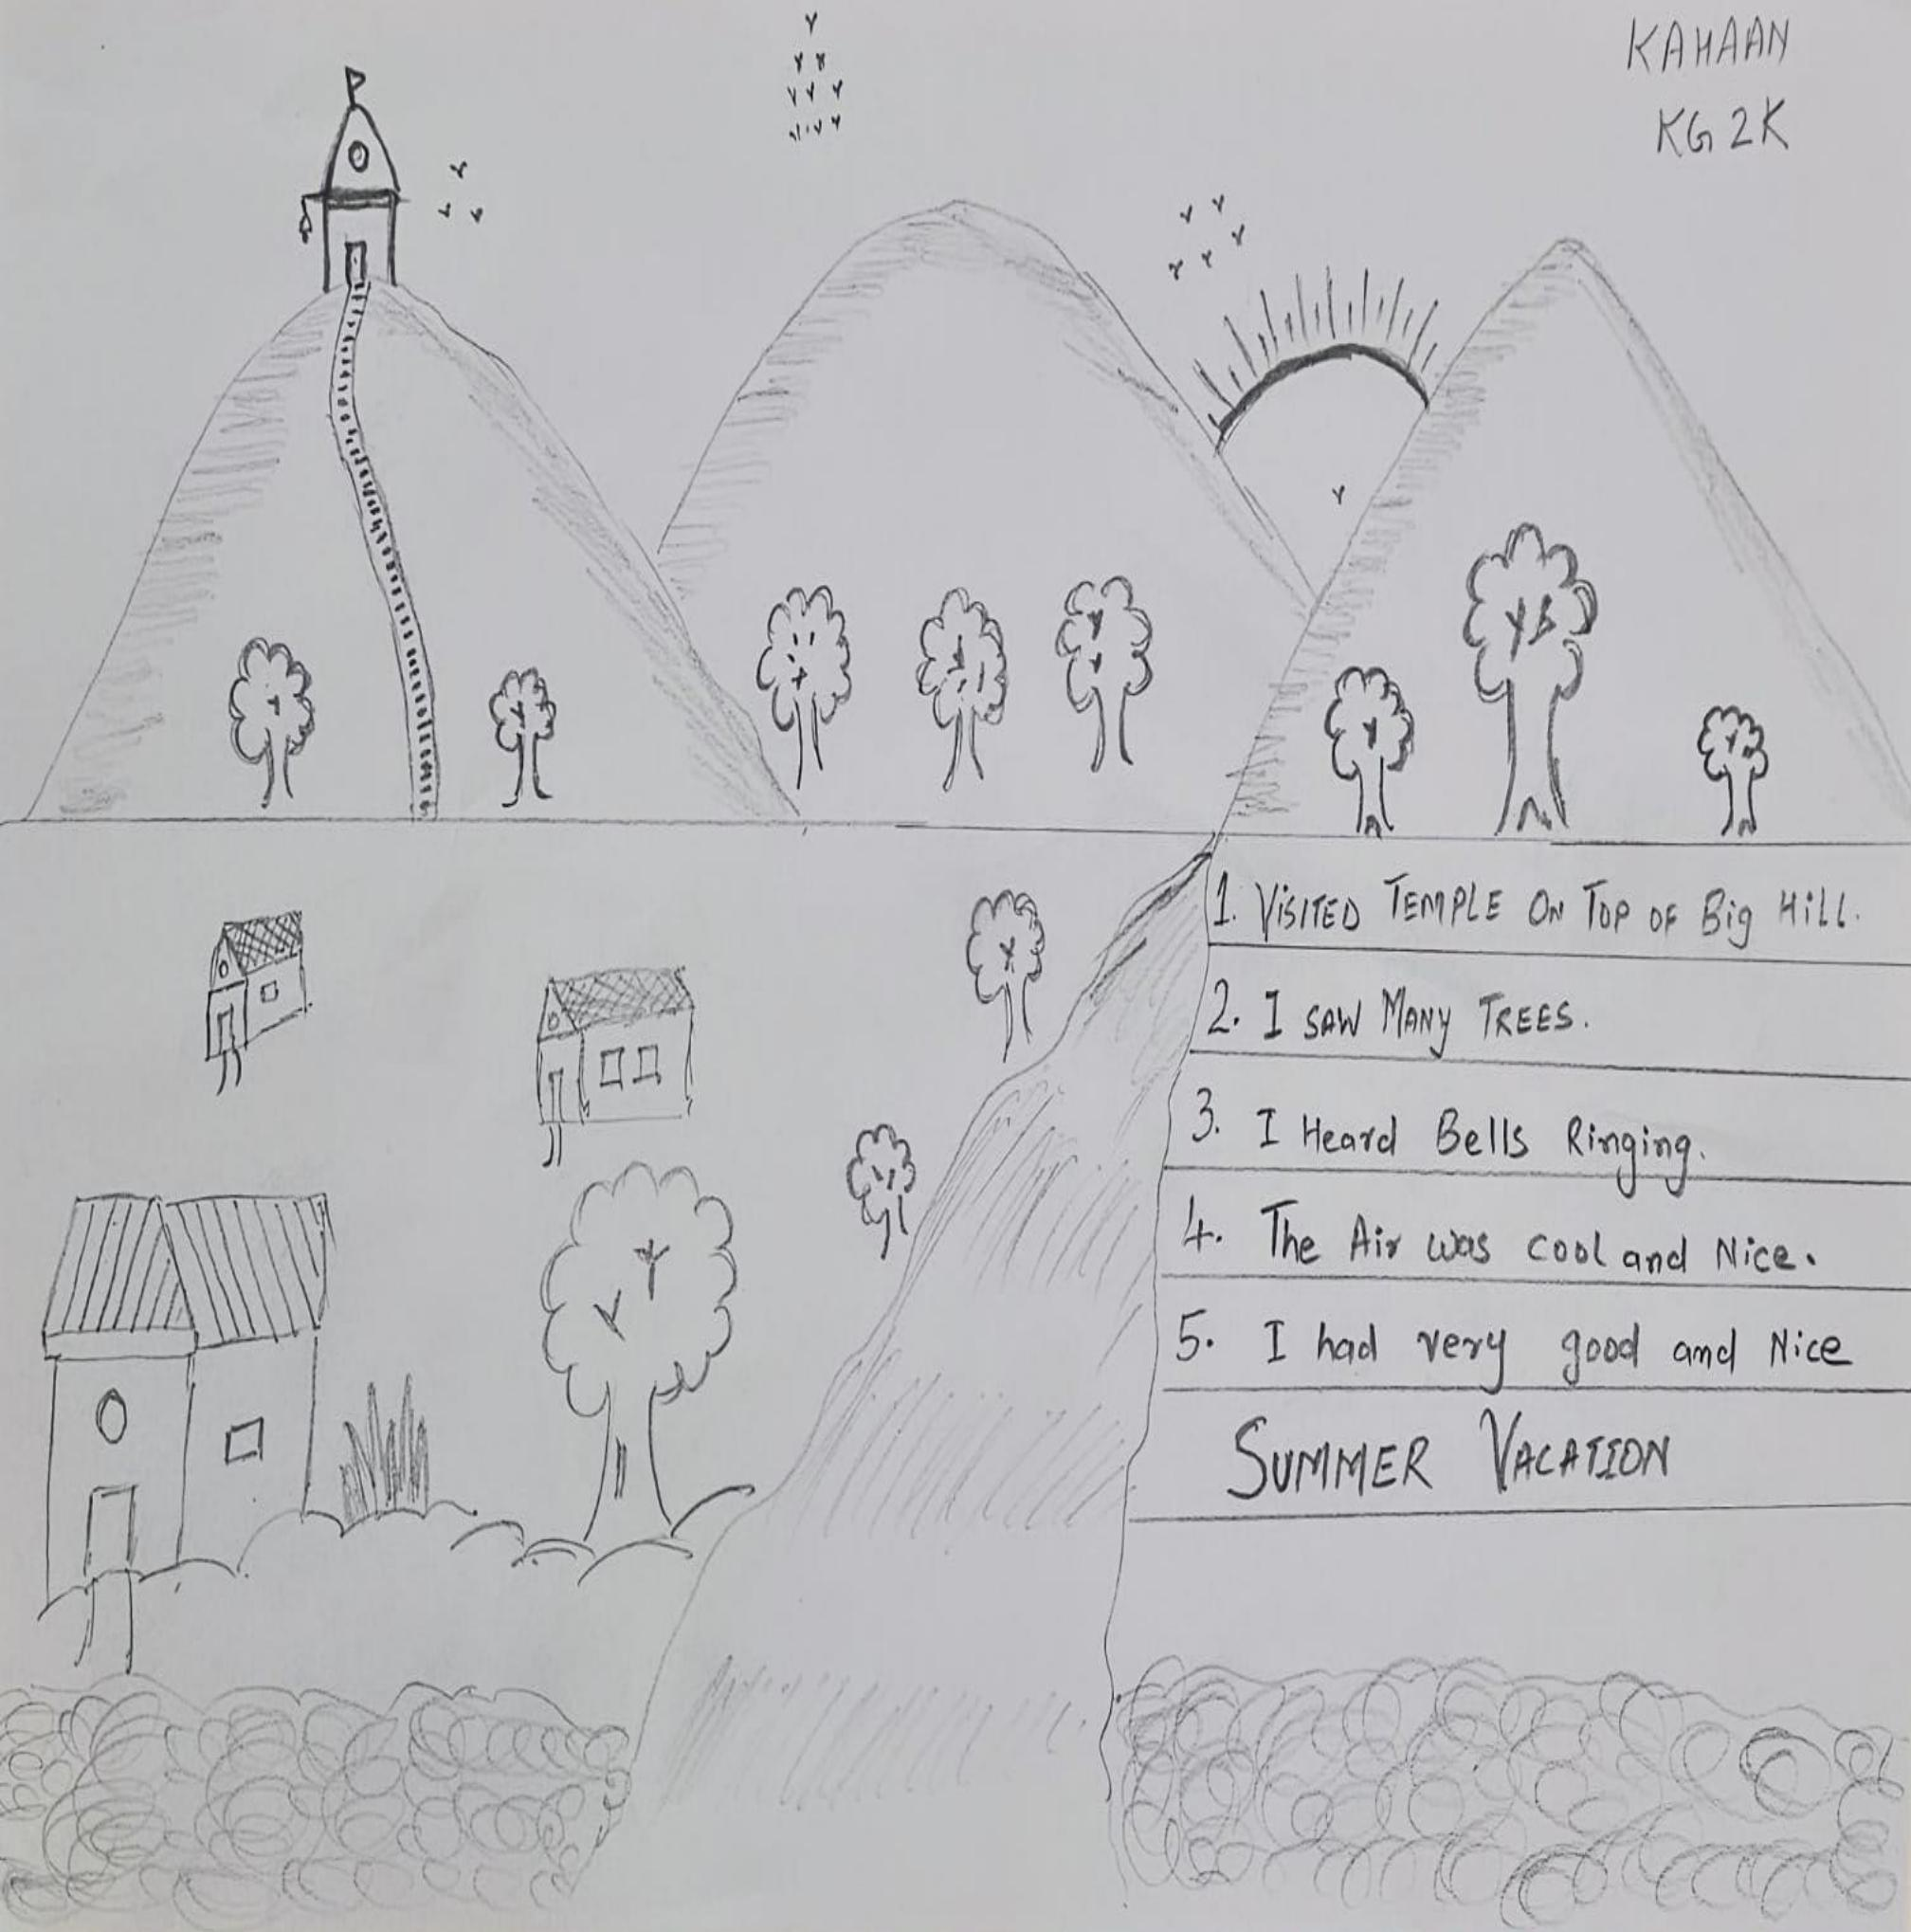 KAHAAN
KG 2K
1. VISITED TEMPLE ON TOP OF Big HILL.
2. I SAW MANY TREES.
3. I Heard Bells Ringing.
4. The Air was cool and Nice.
5. I had very good and Nice
SUMMER VACATION